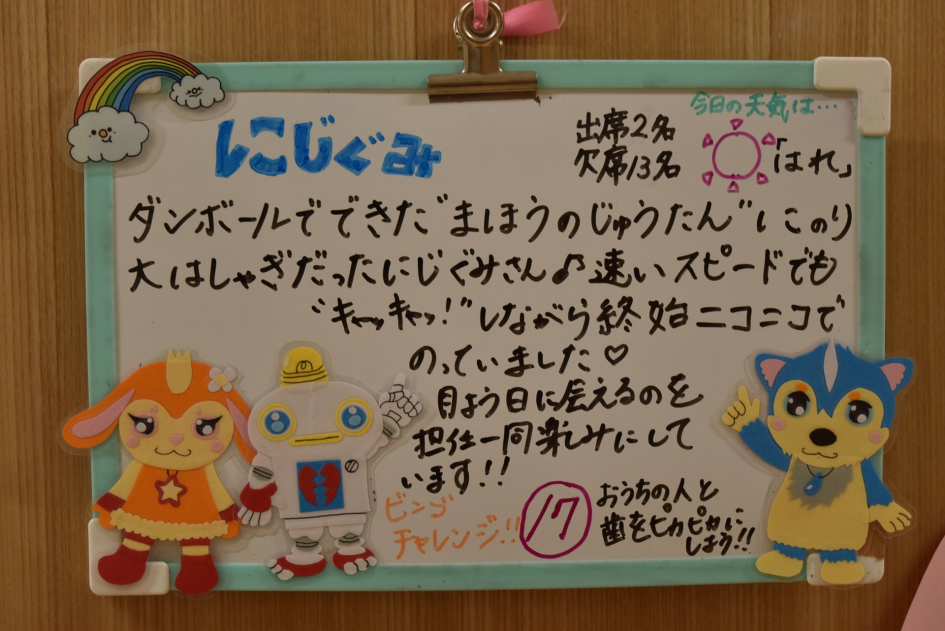 にじぐみ
出席2名
欠席13名
今日の天気は…
「はれ」
ダンボールでできた"まほうのじゅうたん"にのり
大はしゃぎだったにじぐみさん♪速いスピードでも
"キャッキャッ!"しながら終始ニコニコで
のっていました♡
月よう日に会えるのを
担任一同楽しみにして
います!!
ビンゴ
チャレンジ!!
17
おうちの人と
歯をピカピカに
しよう!!